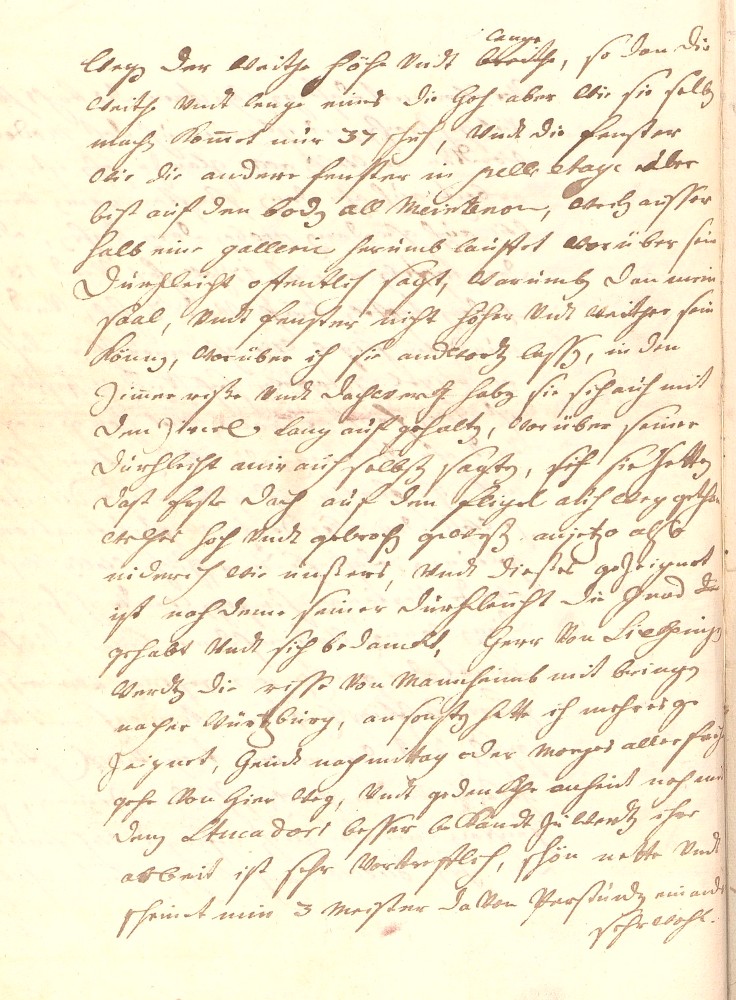 lenge
weg der Weithe höhe Vndt breithe, so dan die
weithe Vndt lenge eines die hoh aber wie sie selbst
mach kommet nur 37 schuh, Vndt die fenster
wie die andere fenster in pelle etage aber
bist auf den bodn all Meintenon, welch ausser
halb eine gallerie herumb lauffet worüber sein
Durchleicht offentlich sagt, Warumb dan mein
saal, Vndt fenster nicht höher Vndt weither sein
könn, worüber ich sie andtwordt lass, in den
Zimmer risse Vndt dachwerch habn sie sich auch mit
den Zirckel lang auf gehaltn, worüber seiner
Durchleicht mir auch selbst sagtn, sie hettn
dass erste dach auf den fligel alch weg gethan
welches hoch Vndt gebroch gewest anjetzo als
niderich wie unsers, Vndt dieses gezeignet
ist nach deme seiner Durchleücht die gnad
gehabt Vndt sich bedanckt, Herr Von
werdn die risse Von Mannheimb mit bringn
nacher Würtzburg, ansonstn hette ich mehres ge
Zeignet, heindt nachmittag oder Morges aller frühe
gehe Von hier weg, Vndt gedenckhe anheint noch mit
den Stucadors besser bekandt zu werdn ihre
arbeit ist sehr Vortrefflich, schön nette Vndt
scheindt mir 3 Meister daVon Verstündn einand
sehr wohl.